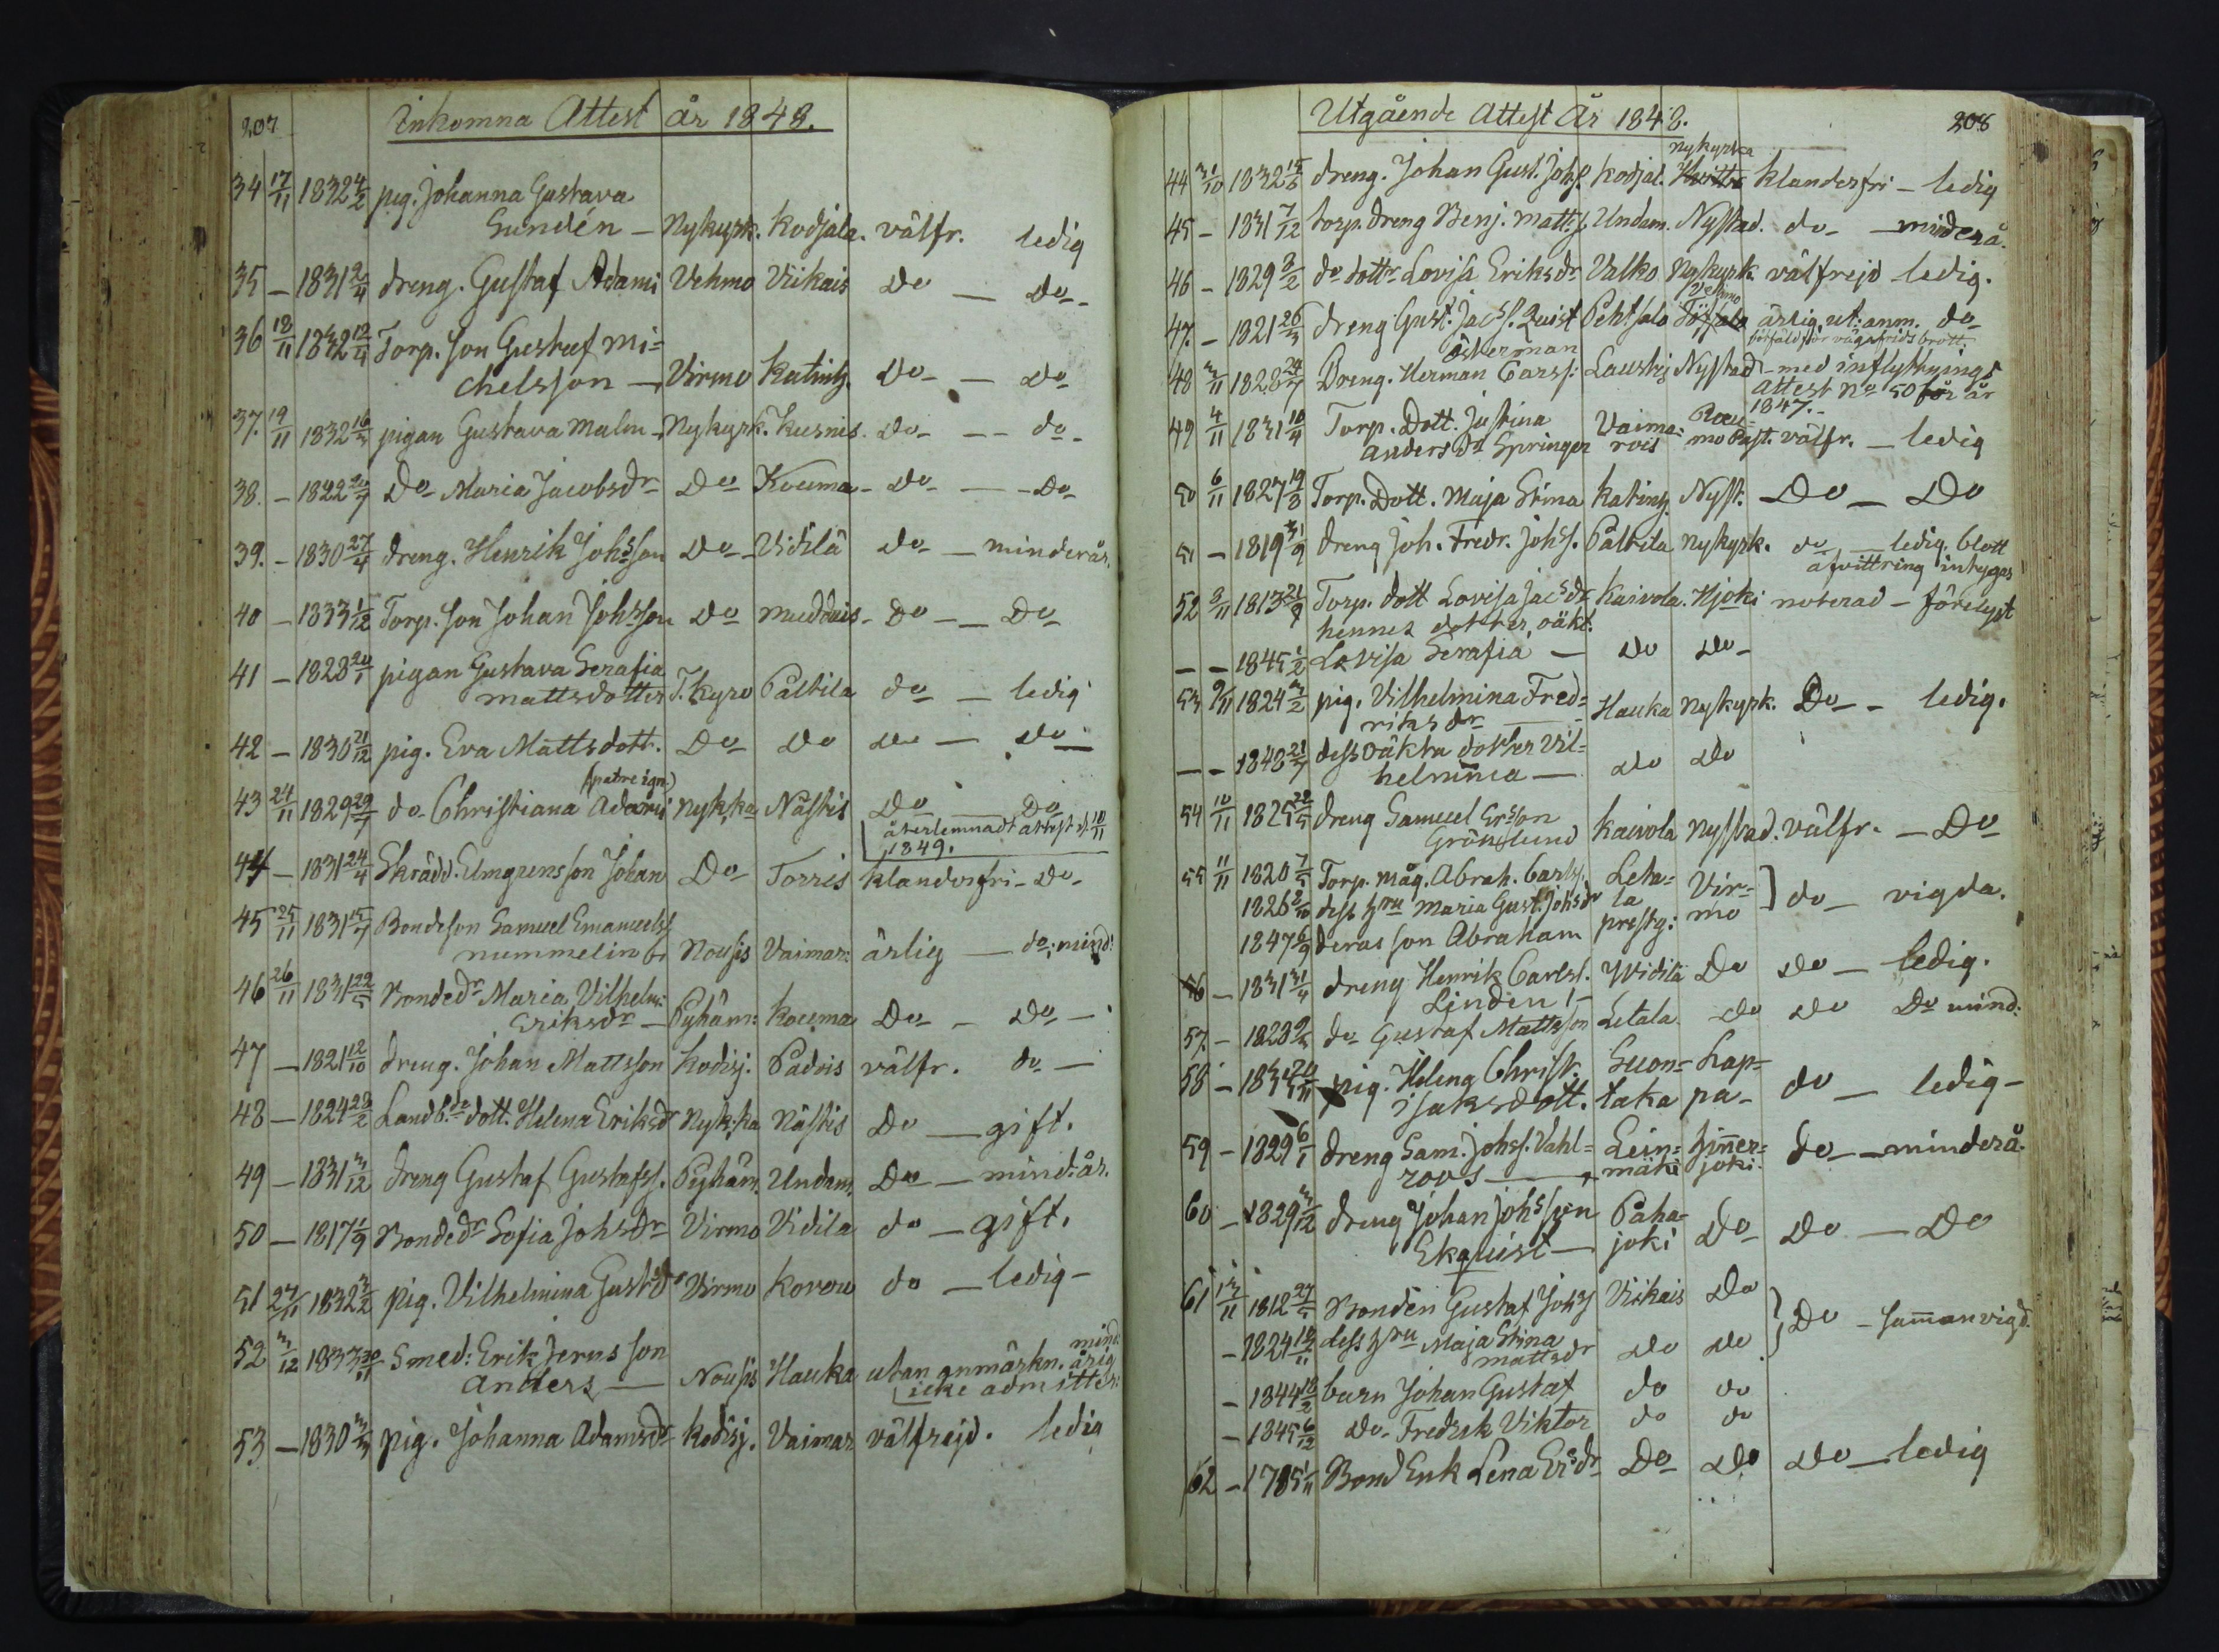 207 Inkomna Attest år 1848.
34 17/11 1832 4/2 pig. Johanna Gustava
Sundén - Nykyrk. Kodjala. välfr. ledig
35 - 1831 2/4 dreng. Gustaf Adami Vehmo Viikais Do - Do-
36 18/11 1832 12/4 Torp. son Gustaf Mi=
chelsson - Virmo Katinh. Do- - Do
37. 19/11 1832 16/3 pigan Gustava Malm - Nykyrk. Kusnis. Do- - do-
38. - 1822 20/7 Do Maria Jacobsdr Do Kouma - Do - Do
39. - 1830 27/4 dreng. Henrik Johsson Do - Vidilä do - minderår.
40 - 1833 1/12 Torp. son Johan Johsson Do Muddais - Do - Do
41 - 1828 20/1 pigan Gustava Serafia
Mattsdotter T. kyro Paltila do - ledig
42 - 1830 21/12 pig. Eva Mattsdott. Do Do Do - Do
(patre ign)
43 24/11 1829 29/7 do Christiana Adami Nyk,ka Nästis Do - Do
återlemnadt attest d. 10/11
1849.
44 - 1831 24/4 Skrädd. Elmgrens son Johan Do Torris klanderfri - Do-
45 25/11 1831 15/7 Bondeson Samuel Emanuelss
Nummelin Nousis Vaimar: ärlig - do; mind:
46 26/11 1831 22/5 Bondedr Maria Vilhelm:
Eriksdr - Pyhäm: Kouma Do - Do -
47 - 1821 12/10 dreng. Johan Mattsson Kodisj. Padois välfr. do -
48 - 1824 28/2 Landb.de dott. Helena Eriksdr Nyk,ka Nästis Do - gift.
49 - 1831 3/12 dreng Gustaf Gustafss. Pyhäm. Undam. Do - mind:år.
50 - 1817 1/9 Bondedr Sofia Johsdr Virmo Vidila do - gift.
51 27/11 1832 3/2 pig. Vilhelmina Gustdr Virmo Korvou do - ledig -
mind:
52 3/12 1833 Smed: Erik Jerns son utan anmärkn. årig
Anders - Nousis Hauka icke admitter:
53 - 1830 3/3 pig. Johanna Adamsdr Kodisj. Vaimar välfrejd. ledig
Utgående Attest År 1848. 208
Nykyrka
44 31/10 1832 15/6 dreng. Johan Gust. Johss. Kodjal. klanderfri - ledig
45 - 1831 7/12 torp. dreng Benj. Matts. Undam. Nystad. do- - minderå.
46 - 1829 3/2 do dottr Lovisa Eriksdr Valko Nykyrk. välfrejd - ledig.
Vehmo
47. - 1821 26/3 dreng Gust. Jacss. Quist Pehtsalo Töfsala ärlig, ut: anm. do-
Österman bötfäld för vägafrids brott.
48 3/11 1828 24/7 Dreng. Herman Carss: Laustis Nystad - med inflyttnings
attest No 50 för år
1847.-
49 4/11 1831 10/4 Torp. Dott. Justina Vaima: Rau=
Andersdr Springer rois mo Past. välfr. - ledig
50 6/11 1827 19/3 Torp. Dott. Maja Stina Katinh. Nyst. - Do - Do
51 - 1819 31/9 dreng Joh. Fredr. Johss. Paltila Nykyrk. do - ledig. blott
afvittring intygas
52 8/11 1813 21/9 Torp. dott Lovisa Jacsdr Kaivola. Hjoki noterad - förelyst
hennes dotter, oäkt:
- - 1845 1/2 Lovisa Serafia - do do-
53 9/11 1824 3/2 pig. Vilhelmina Fred=
riksdr - Hauka Nykyrk. Do - - ledig.
- - 1848 21/7 dess oäkta dotter Vil=
helmina - do do
54 10/11 1825 28/5 dreng Samuel Ersson
Grönlund Kaivola Nystad. välfr. - Do
55 11/11 1820 7/5 Torp. måg. Abrah. Carlss. Leta= Vir=
1826 2/10 dess hru Maria Gust. Johsdr la mo ] do - vigda.
1847 6/9 deras son Abraham prestg:
56 - 1831 3/4 dreng Henrik Carlss. Widilä Do do - ledig.
Lindén! -
57. - 1828 do Gustaf Mattsson Letala - do do Do mind:
58 - 20/11 pig. Helena Christ. Suon= Lap=
Isaksdott. taka pa - do - ledig -
59 - 1829 6/1 dreng Sam. Johss. Vahl= Lein= Hinner=
roos - mäki joki. do - minderå.
60 - 1829 3/12 dreng Johan Johsson Paha=
Ekquist - joki Do Do - Do
61 13/11 1812 27/5 Bonden Gustaf Johss Viikais Do
- 1824 18/11 dess hru Maja Stina
Mattsdr do do } Do - sammanvigd.
- 1844 18/2 barn Johan Gustaf do do
- 1845 6/12 do- Fredrik Viktor do do
62 - 1785 1/11 Bond Enk Lena Ersdr Do Do Do - ledig